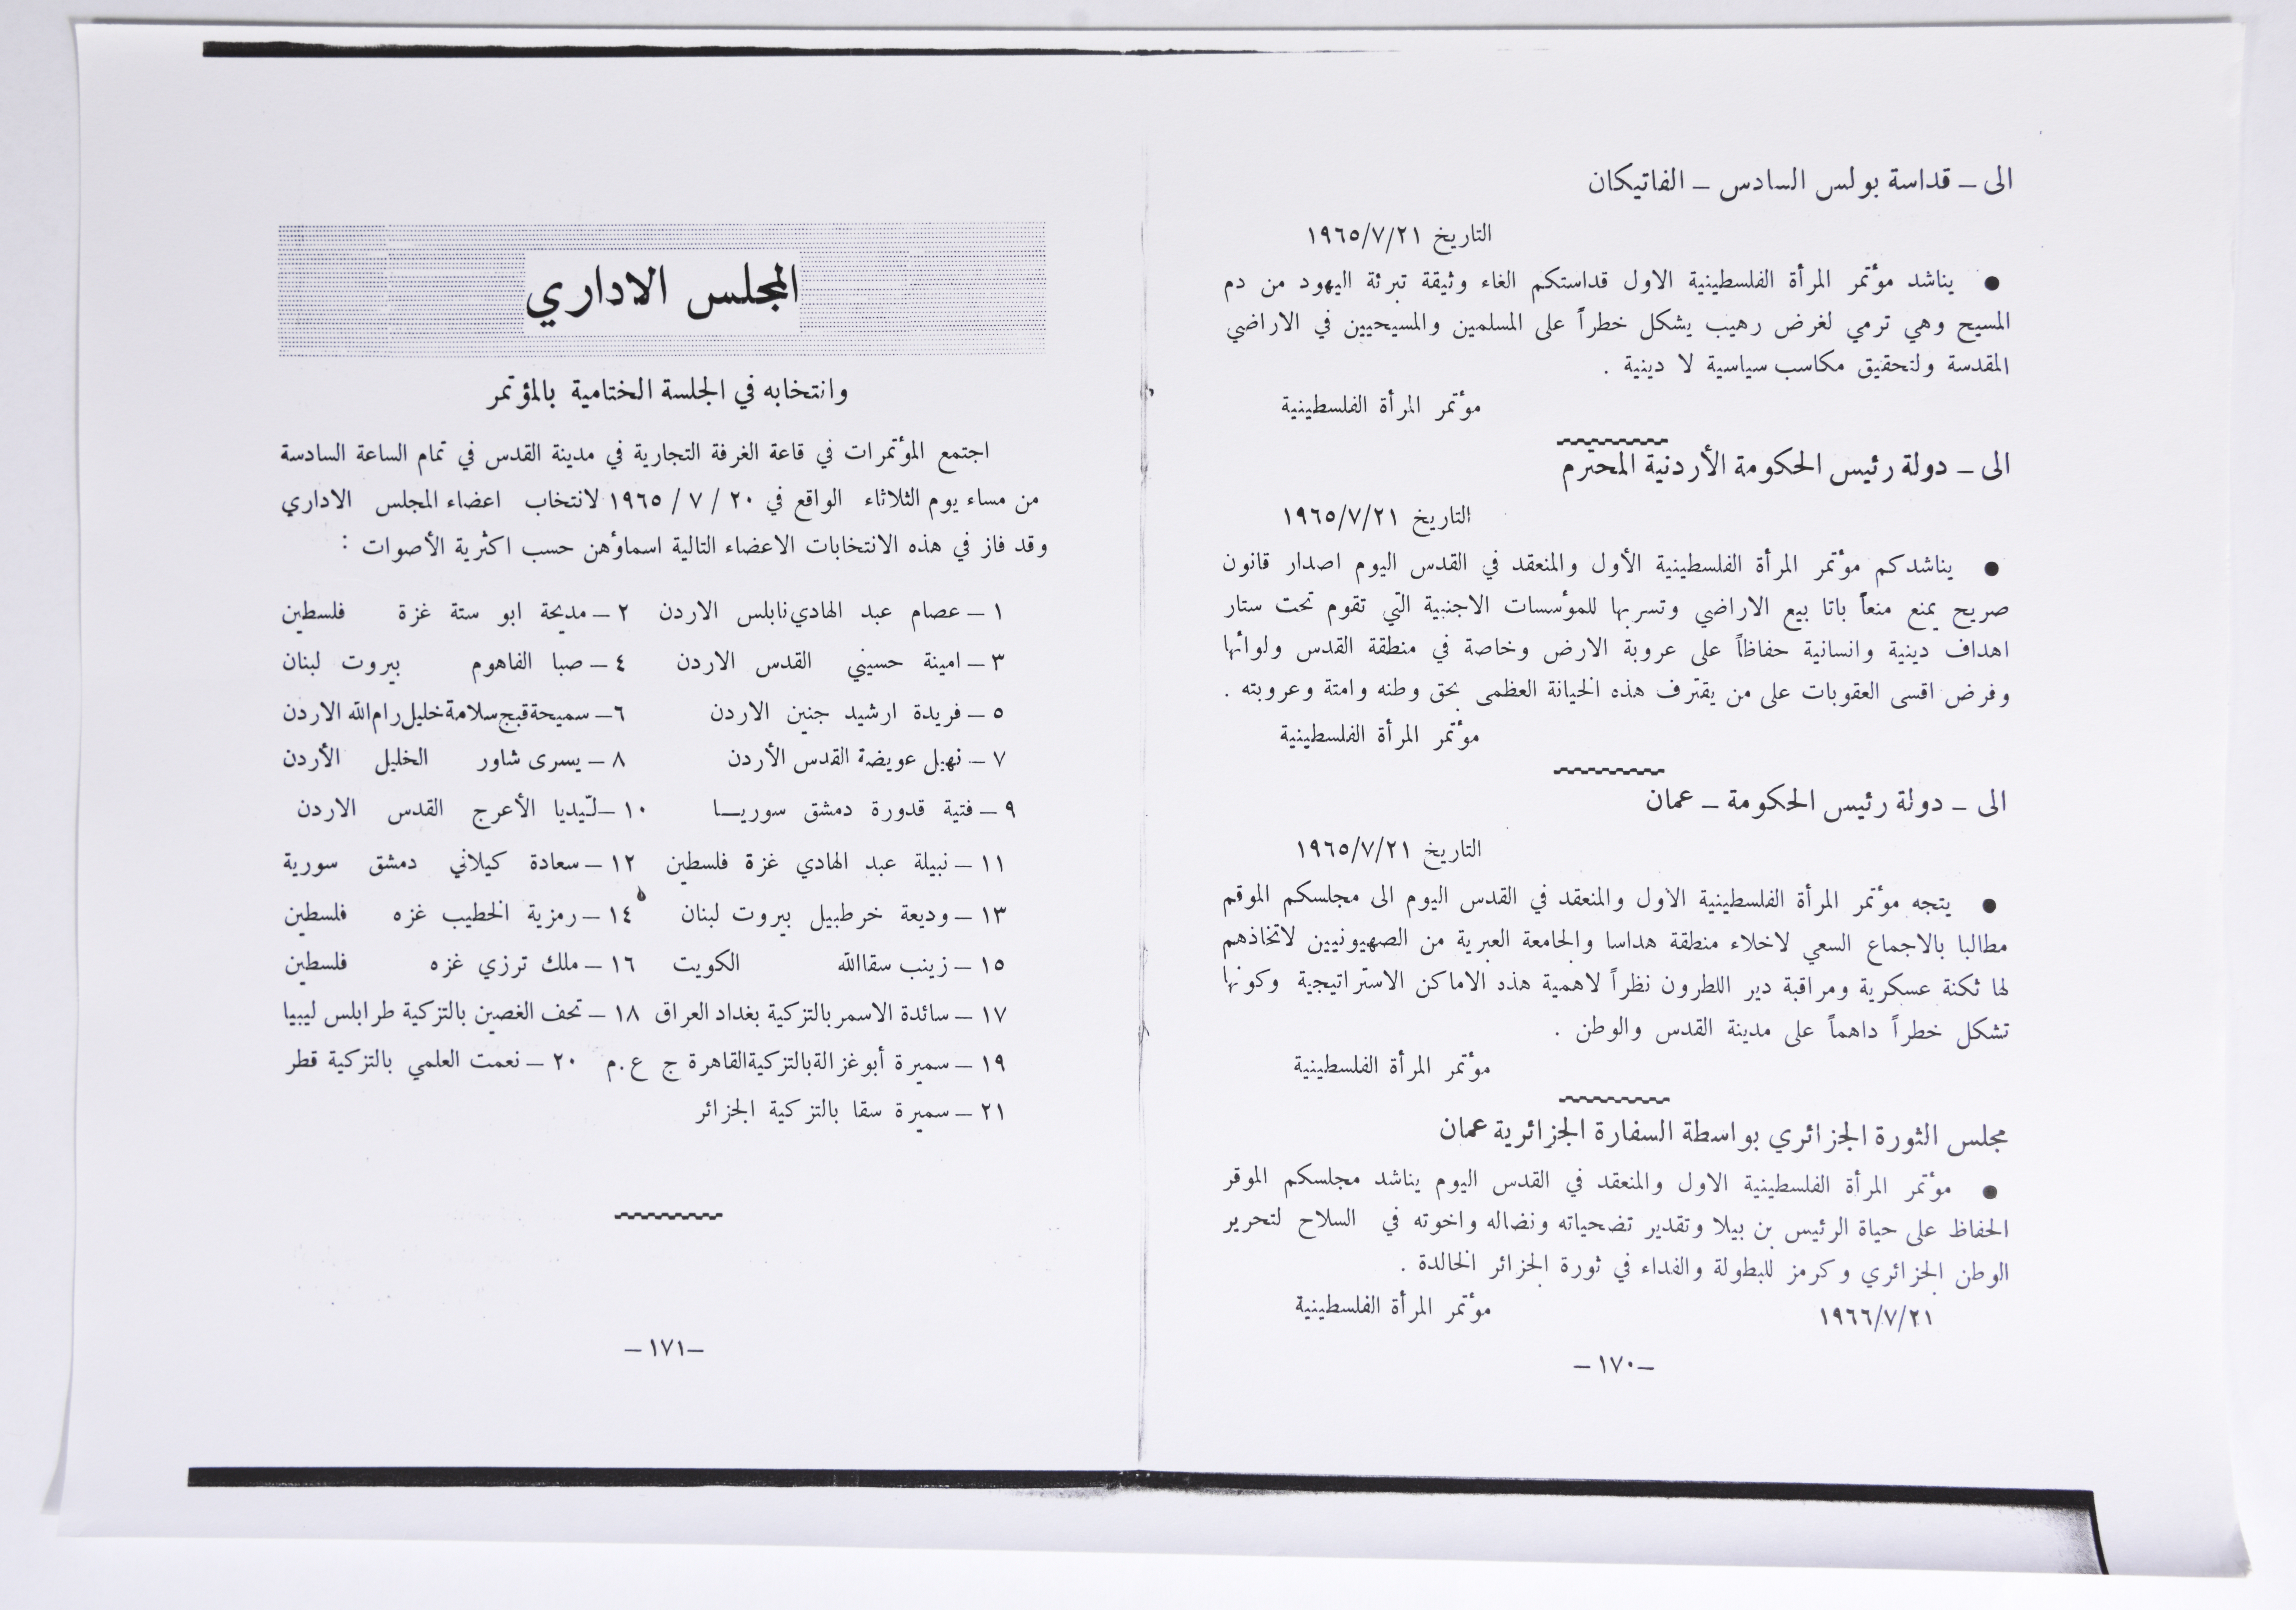 الى – قداسة بولس السادس – الفاتيكان
التاريخ ١٩٦٥/٧/٢١
● يناشد مؤتمر المرأة الفلسطينية الاول قداستكم الغاء وثيقة تبرئة اليهود من دم
المسيح وهي ترمي لغرض رهيب يشكل خطراً على المسلمين والمسيحيين في الاراضي
المقدسة ولتحقيق مكاسب سياسية لا دينية .
مؤتمر المرأة الفلسطينية
الى – دولة رئيس الحكومة الأردنية المحترم
التاريخ ١٩٦٥/٧/٢١
● يناشدكم مؤتمر المرأة الفلسطينية الأول والمنعقد في القدس اليوم اصدار قانون
صريح يمنع منعاً باتا بيع الاراضي وتسربها للمؤسسات الاجنبية التي تقوم تحت ستار
اهداف دينية وانسانية حفاظاً على عروبة الارض وخاصة في منطقة القدس ولوائها
وفرض اقسى العقوبات على من يقترف هذه الخيانة العظمى بحق وطنه وامتة وعروبته .
مؤتمر المرأة الفلسطينية
الى – دولة رئيس الحكومة – عمان
التاريخ ١٩٦٥/٧/٢١
● يتجه مؤتمر المرأة الفلسطينية الاول والمنعقد في القدس اليوم الى مجلسكم الموقم
مطالبا بالاجماع السعي لاخلاء منطقة هداسا والجامعة العبرية من الصهيونيين لاتخاذهم
لها ثكنة عسكرية ومراقبة دير اللطرون نظراً لاهمية هذه الاماكن الاستراتيجية وكونها
تشكل خطراً داهماً على مدينة القدس والوطن .
مؤتمر المرأة الفلسطينية
مجلس الثورة الجزائري بواسطة السفارة الجزائرية عمان
● مؤتمر المرأة الفلسطينية الاول والمنعقد في القدس اليوم يناشد مجلسكم الموقر
الحفاظ على حياة الرئيس بن بيلا وتقدير تضحياته ونضاله واخوته في السلاح لتحرير
الوطن الجزائري وكرمز للبطولة والفداء في ثورة الجزائر الخالدة .
١٩٦٦/٧/٢١ مؤتمر المرأة الفلسطينية
–١٧٠–
المجلس الاداري
وانتخابه في الجلسة الختامية بالمؤتمر
اجتمع المؤتمرات في قاعة الغرفة التجارية في مدينة القدس في تمام الساعة السادسة
من مساء يوم الثلاثاء الواقع في ٢٠ / ٧ / ١٩٦٥ لانتخاب اعضاء المجلس الاداري
وقد فاز في هذه الانتخابات الاعضاء التالية اسماؤهن حسب اكثرية الأصوات :
١ – عصام عبد الهادي نابلس الاردن ٢ – مديحة ابو ستة غزة فلسطين
٣ – امينة حسيني القدس الاردن ٤ – صبا الفاهوم بيروت لبنان
٥ – فريدة ارشيد جنين الاردن ٦ – سميحة قبج سلامة خليل رام الله الاردن
٧ – نهيل عويضة القدس الأردن ٨ – يسرى شاور الخليل الأردن
٩ – فتية قدورة دمشق سوريـا ١٠ – لّيديا الأعرج القدس الاردن
١١ – نبيلة عبد الهادي غزة فلسطين ١٢ – سعادة كيلاني دمشق سورية
١٣ – وديعة خرطبيل بيروت لبنان ١٤ – رمزية الخطيب غزه فلسطين
١٥ – زينب سقاالله الكويت ١٦ – ملك ترزي غزه فلسطين
١٧ – سائدة الاسمر بالتزكية بغداد العراق ١٨ – تحف الغصين بالتزكية طرابلس ليبيا
١٩ – سميرة أبو غزالة بالتزكية القاهرة ج ع.م ٢٠ – نعمت العلمي بالتزكية قطر
٢١ – سميرة سقا بالتزكية الجزائر
–١٧١–